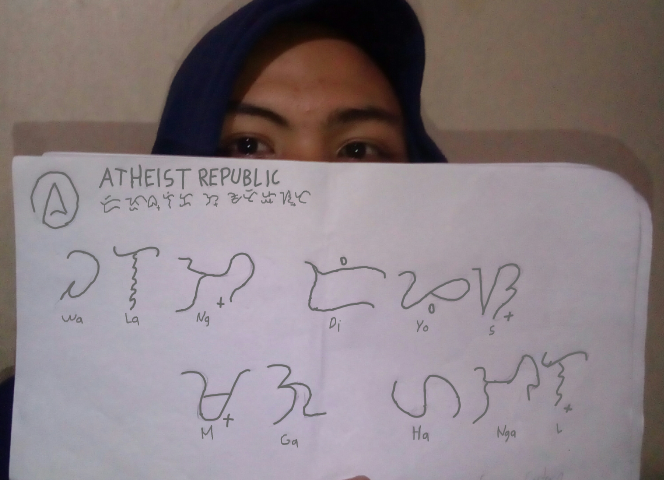 ATHEIST REPUBLIC
ᜏᜎᜅ᜔ ᜇᜒᜌᜓᜐ᜔
Wa La Ng Di Yo S
ᜋ᜔ᜄ ᜑᜅᜎ᜔
M Ga Ha Nga L